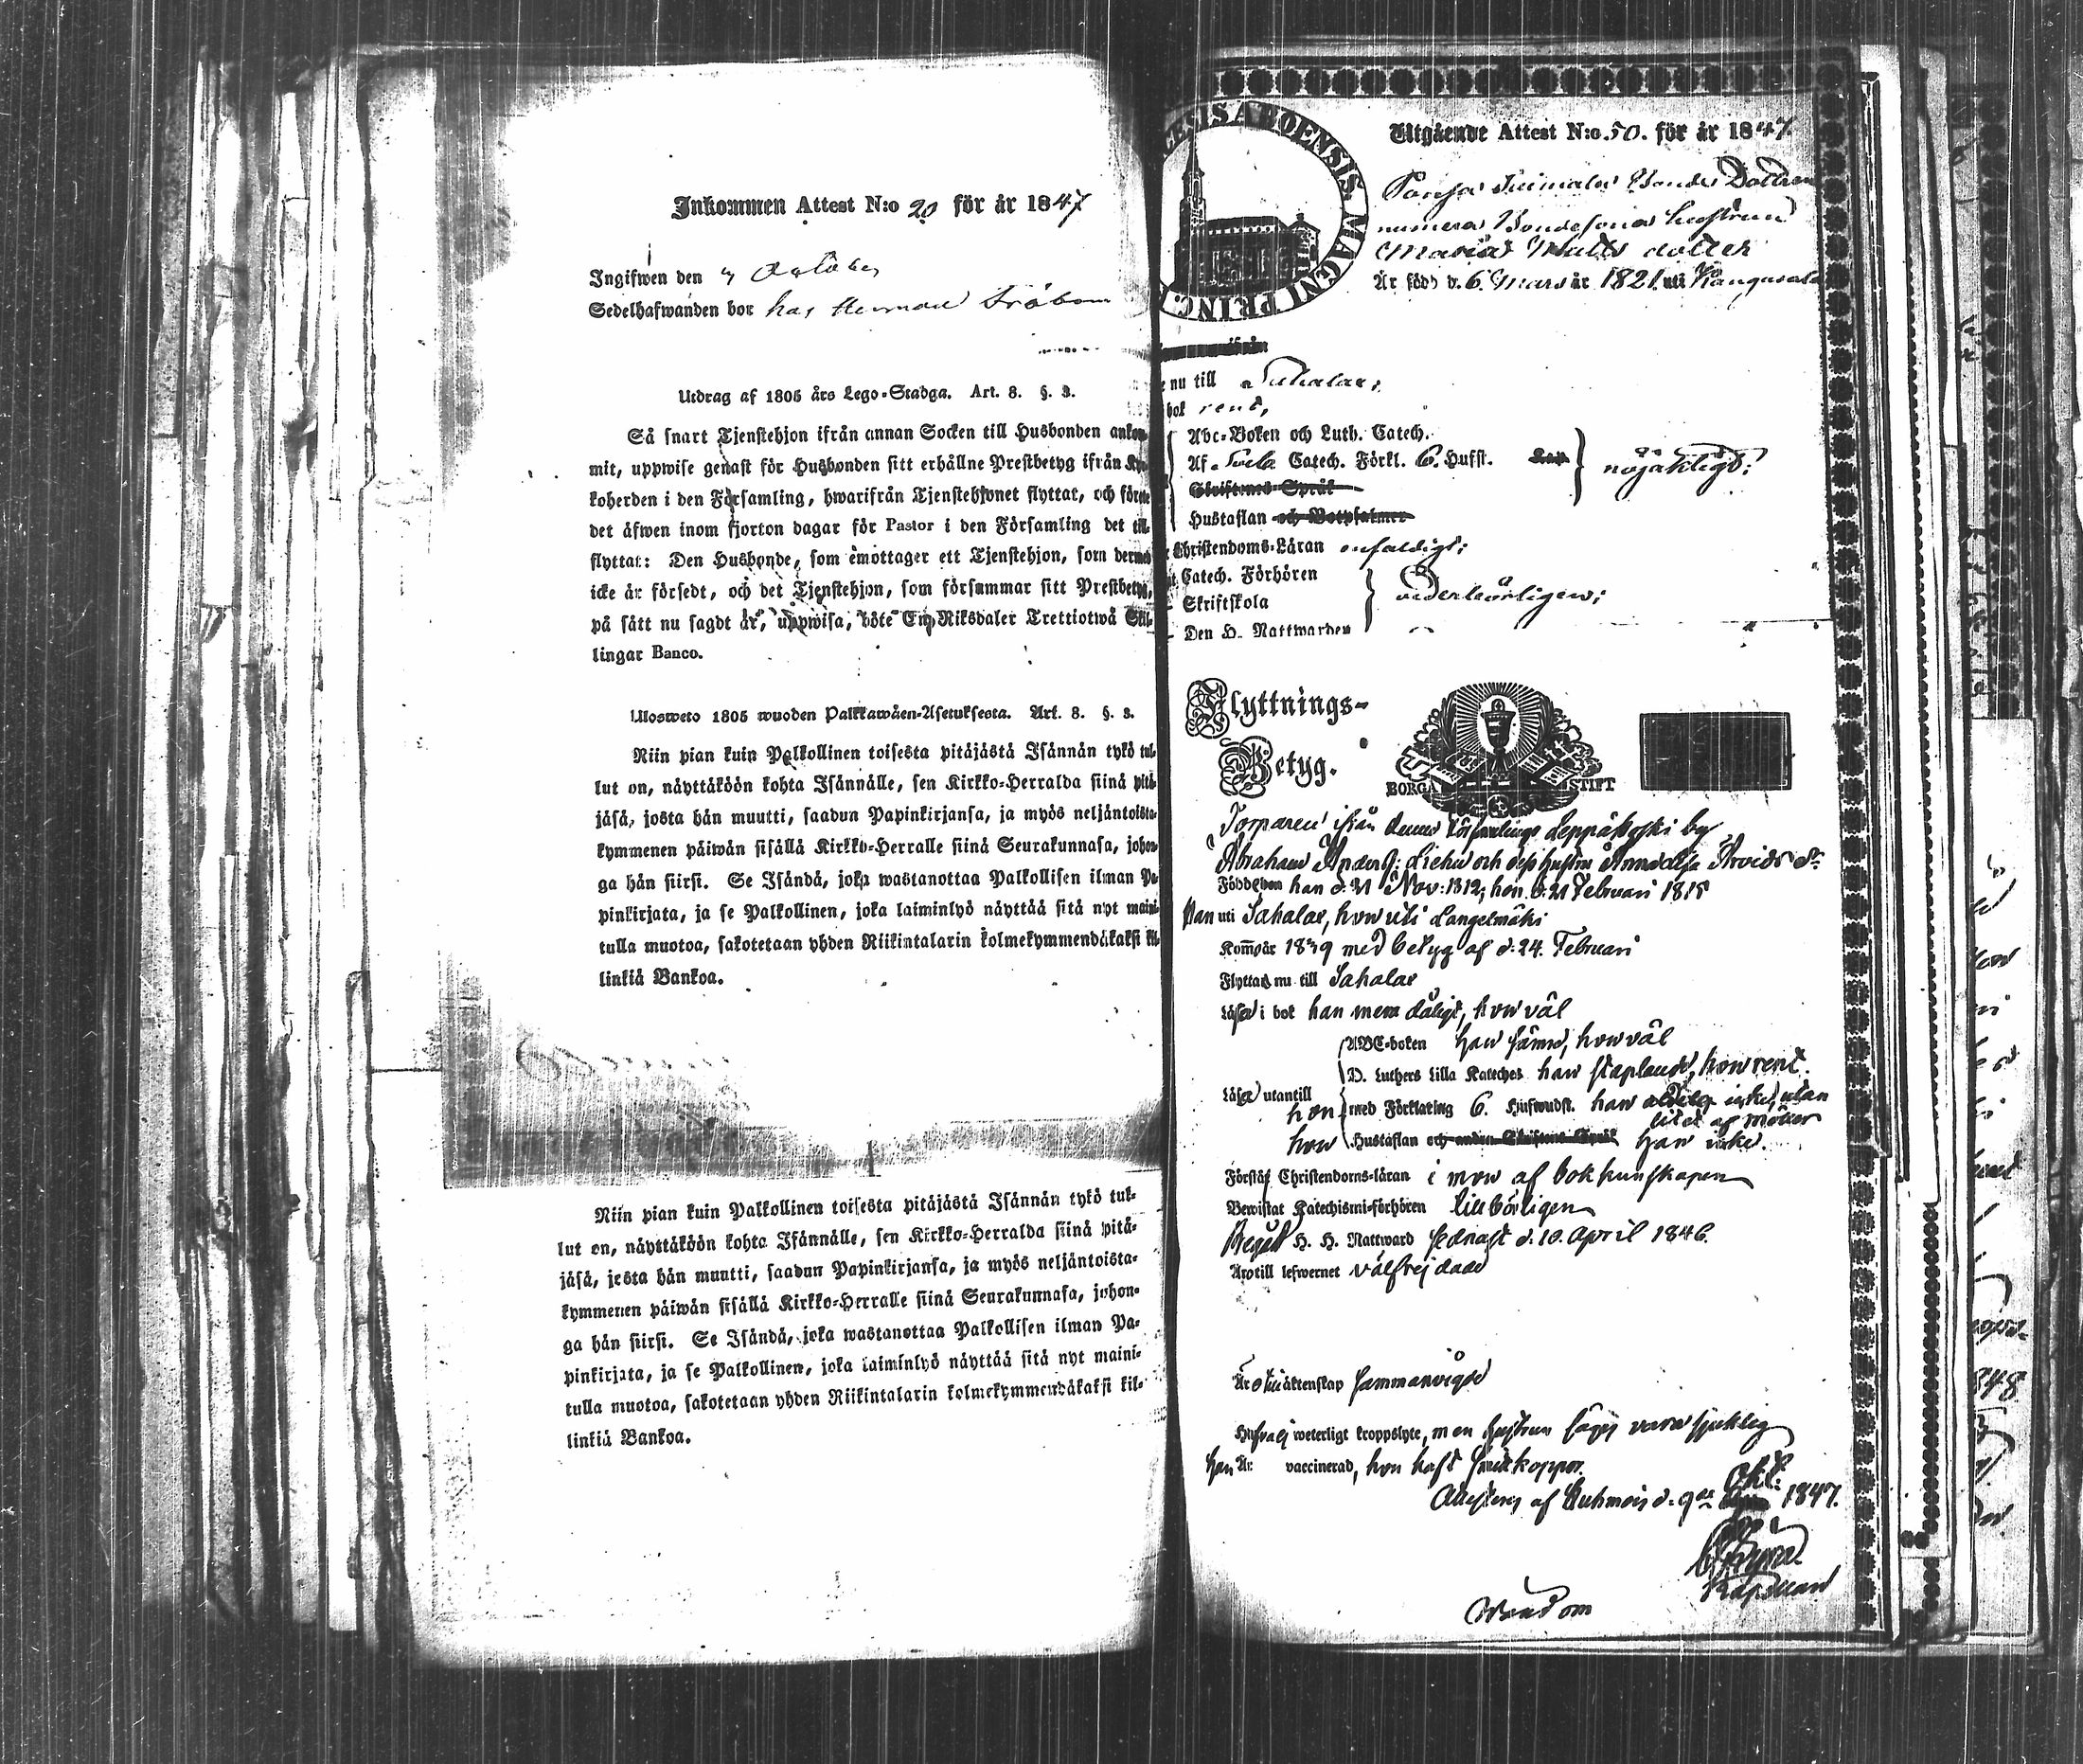 Inkommen Attest N:o 20 för år 1847
Ingifwen den 4 October
Sedelhafwanden bor hos Herman
Utdrag af 1805 års Lego-Stadga. Art. 8. §. 3.
Så snart Tjenstehjon ifrån annan Socken till Husbonden ankom-
mit, uppwise genast för Husbonden sitt erhållne Prestbetyg ifrån Kyr-
koherden i den Församling, hwarifrån Tjenstehjonet flyttat, och förete
det äfwen inom fjorton dagar för Pastor i den Församling det till-
flyttat: Den Husbonde, som emottager ett Tjenstehjon, som dermed
icke är försedt, och det Tjenstehjon, som försummar sitt Prestbetyg,
på sätt nu sagdt är, uppwisa, böte En Riksdaler Trettiotwå Skil-
lingar Banco.
Ulosweto 1805 wuoden Palkkawäen-Asetuksesta. Art. 8. §. 3.
Niin pian kuin Palkollinen toisesta pitäjästä Isännän tykö tul-
lut on, näyttäköön kohta Isännälle, sen Kirkko-Herralda siinä pitä-
jäsä, josta hän muutti, saadun Papinkirjansa, ja myös neljäntoista-
kymmenen päiwän sisällä Kirkko-Herralle siinä Seurakunnasa, johon-
ga hän siirsi. Se Isändä, joka wastanottaa Palkollisen ilman Pa-
pinkirjata, ja se Palkollinen, joka laiminlyö näyttää sitä nyt maini-
tulla muotoa, sakotetaan yhden Riikintalarin kolmekymmendäkaksi kil-
linkiä Bankoa.
Niin pian kuin Palkollinen toisesta pitäjästä Isännän tykö tul-
lut on, näyttäköön kohta Isännälle, sen Kirkko-Herralda siinä pitä-
jäsä, josta hän muutti, saadun Papinkirjansa, ja myös neljäntoista-
kymmenen päiwän sisällä Kirkko-Herralle siinä Seurakunnasa, johon-
ga hän siirsi. Se Isändä, joka wastanottaa Palkollisen ilman Pa-
pinkirjata, ja se Palkollinen, joka laiminlyö näyttää sitä nyt maini-
tulla muotoa, sakotetaan yhden Riikintalarin kolmekymmendäkaksi kil-
linkiä Bankoa.
ABOENSIS. MAGNI PRINC.
Utgående Attest N:o 50. för år 1847
Bonde Dottren
numera Bondesona hustrun
Maria Matts dotter
Är född d. 6 Mars år 1821 uti Kangasala
nu till Sahalax;
bok rent,
Abc-Boken och Luth. Catech.
Af Catech. Förkl. 6. Hufst. nöjaktligt;
Skriftenes Språk
Hustaflan och Botpsalmer
Christendoms-Läran enfaldigt;
Catech. Förhören
Skriftskola vederbörligen;
Den H. Nattwarden
Flyttnings-
Betyg.
BORGÅ STIFT
Torparen ifrån denna församlings Leppäkoski by
Abraham Anders: och dess hustru Anna Arvids dr
Födde han d. 21 Nov: 1812, hon d. 21 Februari 1815
Han uti Sahalax, hon uti Längelmäki
Kom år 1839 med betyg af d. 24. Februari
Flyttar nu till Sahalax
Läser i bok han mera dåligt, hon väl
ABC-boken han sämre, hon väl
D. Luthers Lilla Kateches han staplande, hon rent.
Läser utantill
hon med Förklaring 6. Hufwudst. han icke, utan
litet af
hon Hustaflan och andra Skriftens Språk han icke.
Förstår Christendoms-läran i mon af bokkunskapen
Bewistat Katechismi-förhören tillbörligen
Begått H. H. Nattward sednast d. 10. April 1846.
Äro till lefwernet välfrejdade
Äro i äktenskap sammanvigde
Hafwa ej weterligt kroppslyte, men hustrun säges vara sjuklig
han Är vaccinerad, hon haft smittkoppor.
Attesteras af Kuhmois d. 9de Okt: 1847.
Kapellan
Vänd om